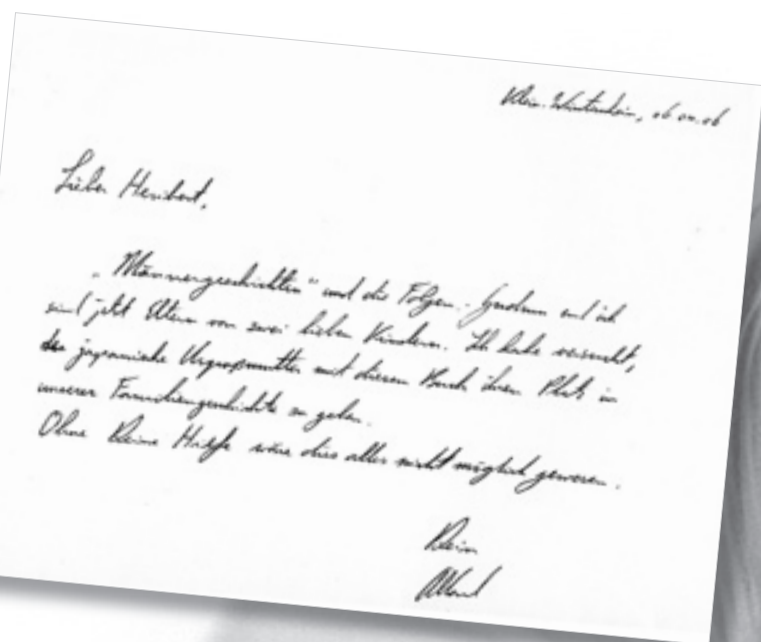 Klein-Winternheim, 06.04.06
Lieber Heribert,
„Männergeschichten" und die Folgen. Gudrun und ich
sind jetzt Eltern von zwei lieben Kindern. Ich habe versucht,
der japanische Urgrossmutter mit diesem Buch ihren Platz in
unserer Familiengeschichte zu geben.
Ohne Deine Hilfe wäre dies alles nicht möglich gewesen.
Dein